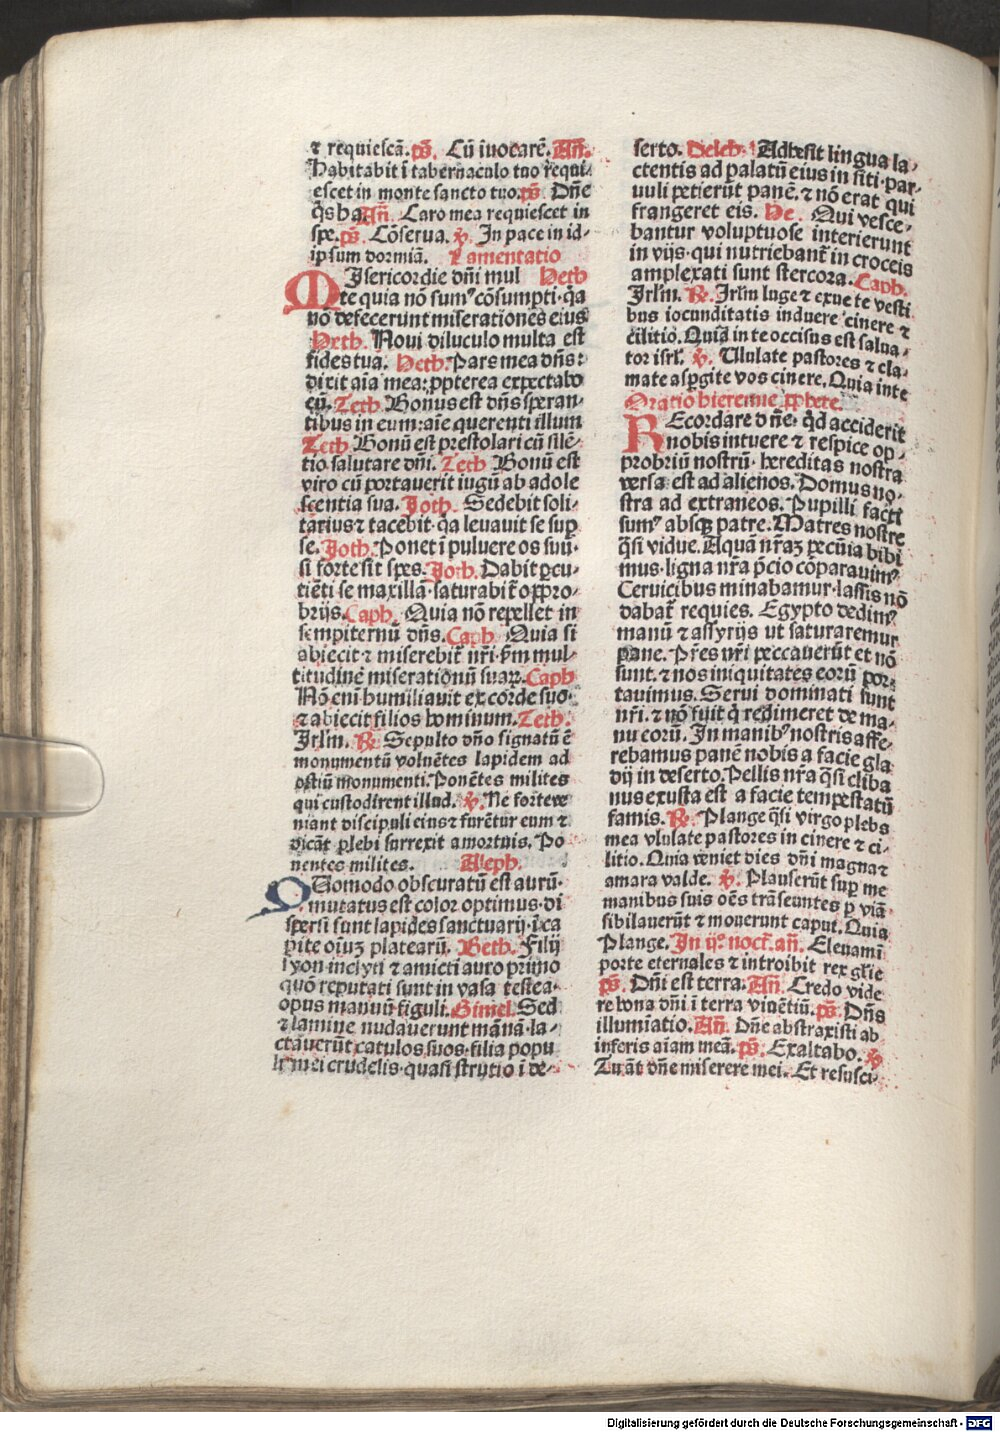 ⁊ requiescā. ps̄. Cū īuocarē. An̄.
Habitabit ī tabernaculo tuo requi-
escet in monte sancto tuo. ps̄. Dn̄e
q̄s ha. An̄. Caro mea requiescet in
spe. ps̄. Cōserua. ℣. In pace in id-
ipsum dormiā. Lamentatio
MIsericordie dn̄i mul Heth
te quia nō sumꝰ cōsumpti· q̄a
nō defecerunt miserationes eius
Heth. Noui diluculo multa est
fides tua. Heth. Pars mea dn̄s:
dixit aīa mea: ꝓpterea expectabo
eū. Teth. Bonus est dn̄s speran-
tibus in eum: aīe querenti illum
Teth Bonū est prestolari cū silē-
tio salutare dn̄i. Teth Bonū est
viro cū portauerit iugū ab adole
scentia sua. Joth. Sedebit soli-
tarius ⁊ tacebit· q̄a leuauit se sup̄
se. Joth. Ponet ī puluere os suū·
si forte sit spes. Joth. Dabit ꝑcu-
tiēti se maxillā· saturabit᷑ oppro-
brijs. Caph. Quia nō repellet in
sempiternū dn̄s. Caph. Quia si
abiecit ⁊ miserebit᷑ nr̄i· ẜm mul-
titudinē miserationū suaꝝ. Caph
Nō enī humiliauit ex corde suo·
⁊ abiecit filios hominum. Teth.
Jrl̄m. ℟. Sepulto dn̄o signatū ē
monumentū voluētes lapidem ad
ostiū monumenti. Ponētes milites
qui custodirent illud. ℣. Ne forte ve
niant discipuli eius ⁊ furētur eum ⁊
dicāt plebi surrexit a mortuis. Po
nentes milites. Aleph.
QUomodo obscuratū est aurū·
mutatus est color optimus· di
spersi sunt lapides sanctuarij· ī ca
pite oīuꝫ platearū. Beth. Filij
syon inclyti ⁊ amicti auro primo
quō reputati sunt in vasa testea·
opus manuū figuli. Gimel. Sed
⁊ lamine nudauerunt māmā· la-
ctauerūt catulos suos· filia popu
li mei crudelis· quasi strutio ī de-
serto. Deleth. Adhesit lingua la-
ctentis ad palatū eius in siti· par-
uuli petierūt panē. ⁊ nō erat qui
frangeret eis. He. Qui vesce-
bantur voluptuose interierunt
in vijs· qui nutriebant᷑ in croceis
amplexati sunt stercora. Caph.
Jrl̄m. ℟. Jrl̄m luge ⁊ exue te vesti
bus iocunditatis induere cinere ⁊
cilitio. Quia in te occisus est salua-
tor isrl̄. ℣. Ululate pastores ⁊ cla-
mate aspergite vos cinere. Quia in te
Oratio hieremie ꝓphete.
REcordare dn̄e· q̄d acciderit
nobis intuere ⁊ respice op-
probriū nostrū· hereditas nostra
versa est ad alienos. Domus no-
stra ad extraneos. Pupilli facti
sumꝰ absqꝫ patre. Matres nostre
q̄si vidue. Aquā nr̄aꝫ pecūia bibi
mus· ligna nr̄a p̄cio cōparauimꝰ
Ceruicibus minabamur· lassis nō
dabat᷑ requies. Egypto dedimꝰ
manū ⁊ assyrijs ut saturaremur
pane. Pr̄es nr̄i peccauerūt et nō
sunt. ⁊ nos iniquitates eorū por-
tauimus. Serui dominati sunt
nr̄i. ⁊ nō fuit q̄ redimeret de ma-
nu eorū. In manibꝰ nostris affe-
rebamus panē nobis a facie gla
dij in deserto. Pellis nr̄a q̄si cliba
nus exusta est a facie tempestatū
famis. ℟. Plange q̄si virgo plebs
mea vlulate pastores in cinere ⁊ ci-
litio. Quia veniet dies dn̄i magna ⁊
amara valde. ℣. Plauserūt sup̄ me
manibus suis oēs trāseuntes ꝑ viā
sibilauerūt ⁊ mouerunt caput. Quia
Plange. In ij.º noct̄. an̄. Eleuamī
porte eternales ⁊ introibit rex gl̄ie
ps̄. Dn̄i est terra. An̄. Credo vide
re bona dn̄i ī terra viuētiū. ps̄. Dn̄s
illumiatio. An̄. Dn̄e abstraxisti ab
inferis aīam meā. ps̄. Exaltabo. ℣
Tu āt dn̄e miserere mei. Et resusci-
Digitalisierung gefördert durch die Deutsche Forschungsgemeinschaft - DFG